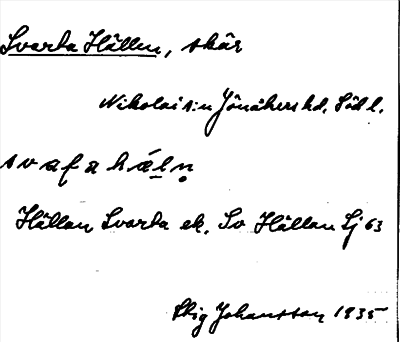 Svarta Hällen, skär
Nikolai s:n Jönåkers hd. Södl.
svaʈa hä̀ḷṇ
Hällan Svarta ek. Sv Hällan Sj 63
Stig Johansson 1935